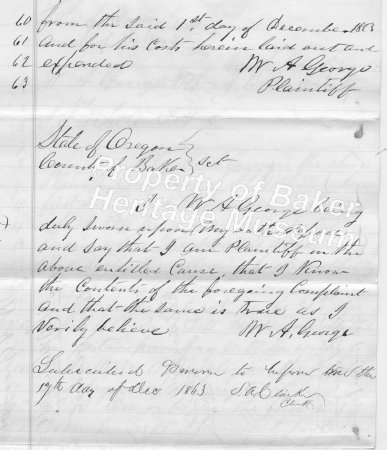 60 from the said 1st day of December 1863
61 and for his costs herein laid out and
62 expended W A George
63 Plaintiff
State of Oregon
County of Baker } sct
I W A George being
duly sworn upon my oath depose
and say that I am Plaintiff in the
above entitled Cause, that I know
the Contents of the foregoing Complaint
and that the same is True as I
Verily believe W. A. George
Subscribed Sworn to before me the
19th day of Dec 1863 S. A. Clarke
Clerk
Property of Baker
Heritage Museum